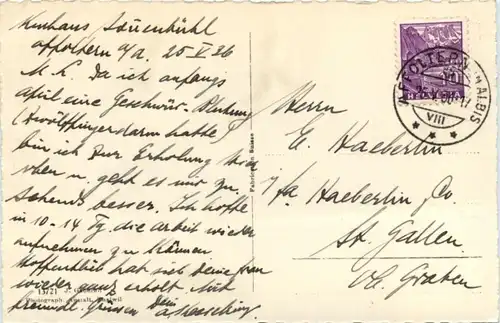 Kurhaus Löwenbühl
Affoltern a/A. 25 V 36
M. L. Da ich anfangs
April eine Geschwür-Blutung
(Zwölffingerdarm hatte)
bin ich zur Erholung hie
oben u. geht es mir zu
sehends besser. Ich hoffe
in 10-14 Tg. die Arbeit wieder
aufnehmen zu können
Hoffentlich hat sich deine Frau
wieder ganz erholt. Mit
freundl. Grüssen Dein
Herrn
E. Haeberlin
i/Fa Haeberlin, Co.
St. Gallen
Ob. Graben
HELVETIA
AFFOLTERN A. ALBIS
VIII
13721
Photograph. Anstalt, Thalwil
Fabrication Suisse